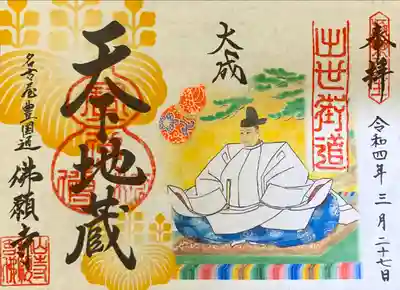 奉拝
令和四年三月二十七日
出世街道
大成
天下地蔵
名古屋豊国道
佛願寺